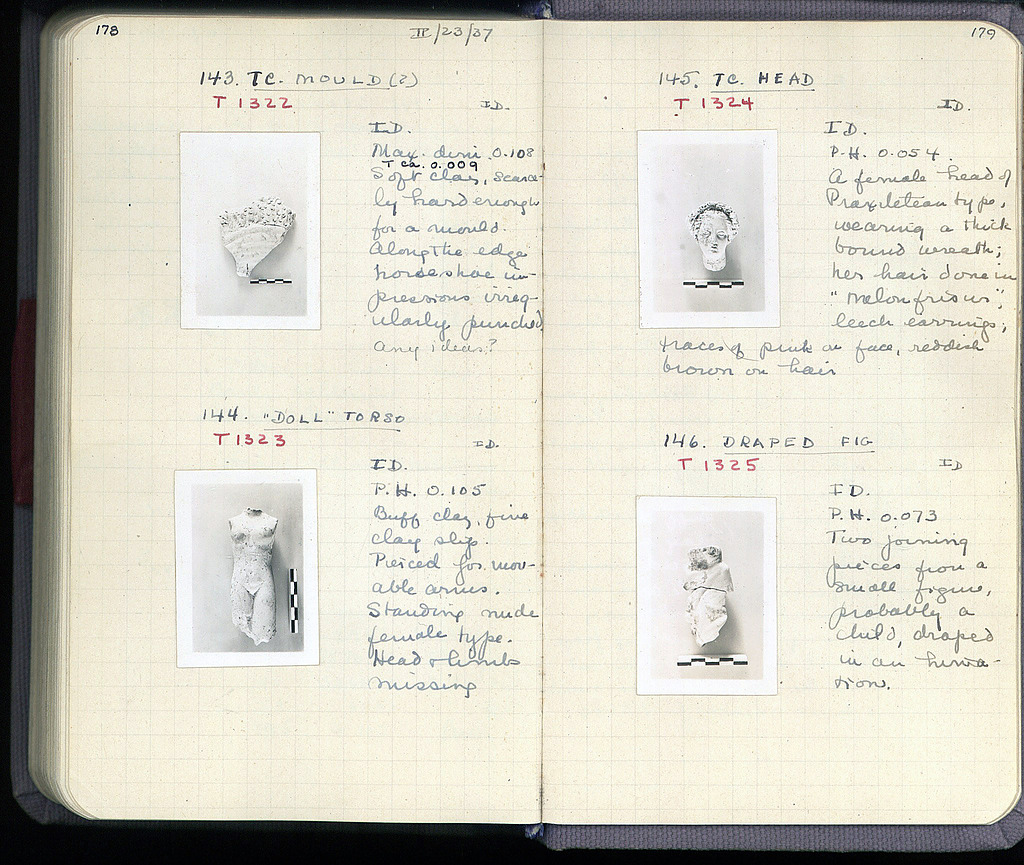 178
II/23/37
143. TC. MOULD (?)
T 1322
ID.
ID.
Max. dim. 0.108
T ca. 0.009
Soft clay, scarce-
ly hard enough
for a mould.
Along the edge
horseshoe im-
pressions irreg-
ularly punched.
any ideas?
144. "DOLL" TORSO
T 1323
ID.
ID.
P.H. 0.105
Buff clay, fine
clay slip.
Pierced for mov-
able arms.
Standing nude
female type.
Head & limbs
missing
179
145. TC. HEAD
T 1324
ID.
ID.
P.H. 0.054.
A female head of
Praxitelean type,
wearing a thick
bound wreath;
her hair done in
"melon frisur";
leech earrings;
traces of pink on face, reddish
brown on hair
146. DRAPED FIG
T 1325
ID
ID.
P.H. 0.073
Two joining
pieces from a
small figure,
probably a
child, draped
in an hima-
tion.